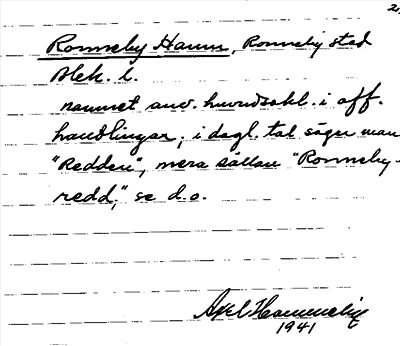 2.
Ronneby Hamn, Ronneby stad
Blek. l.
namnet anv. huvudsakl. i off.
handlingar, i dagl. tal säger man
"Redden", mera sällan "Ronneby-
redd," se d.o.
Axel
1941